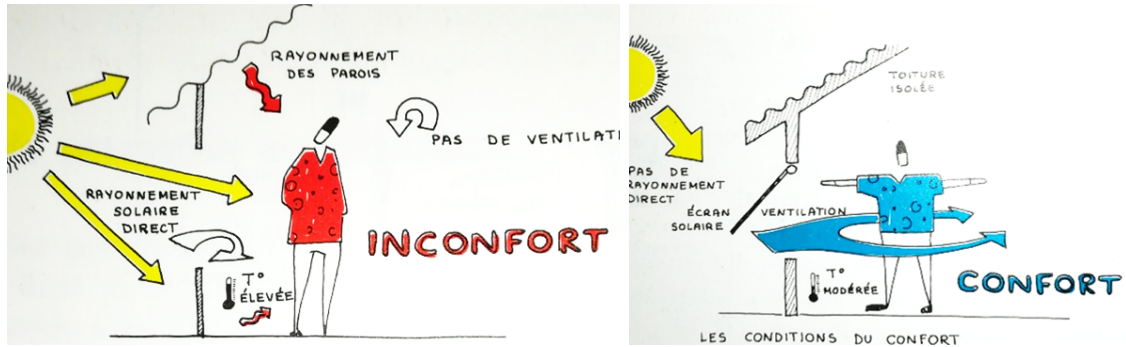 RAYONNEMENT
DES PAROIS
PAS DE VENTILATI
RAYONNEMENT
SOLAIRE
DIRECT
INCONFORT
T°
ÉLEVÉE
TOITURE
ISOLÉE
PAS DE
RAYONNEMENT
DIRECT
ÉCRAN
SOLAIRE
VENTILATION
T°
MODÉRÉE
CONFORT
LES CONDITIONS DU CONFORT